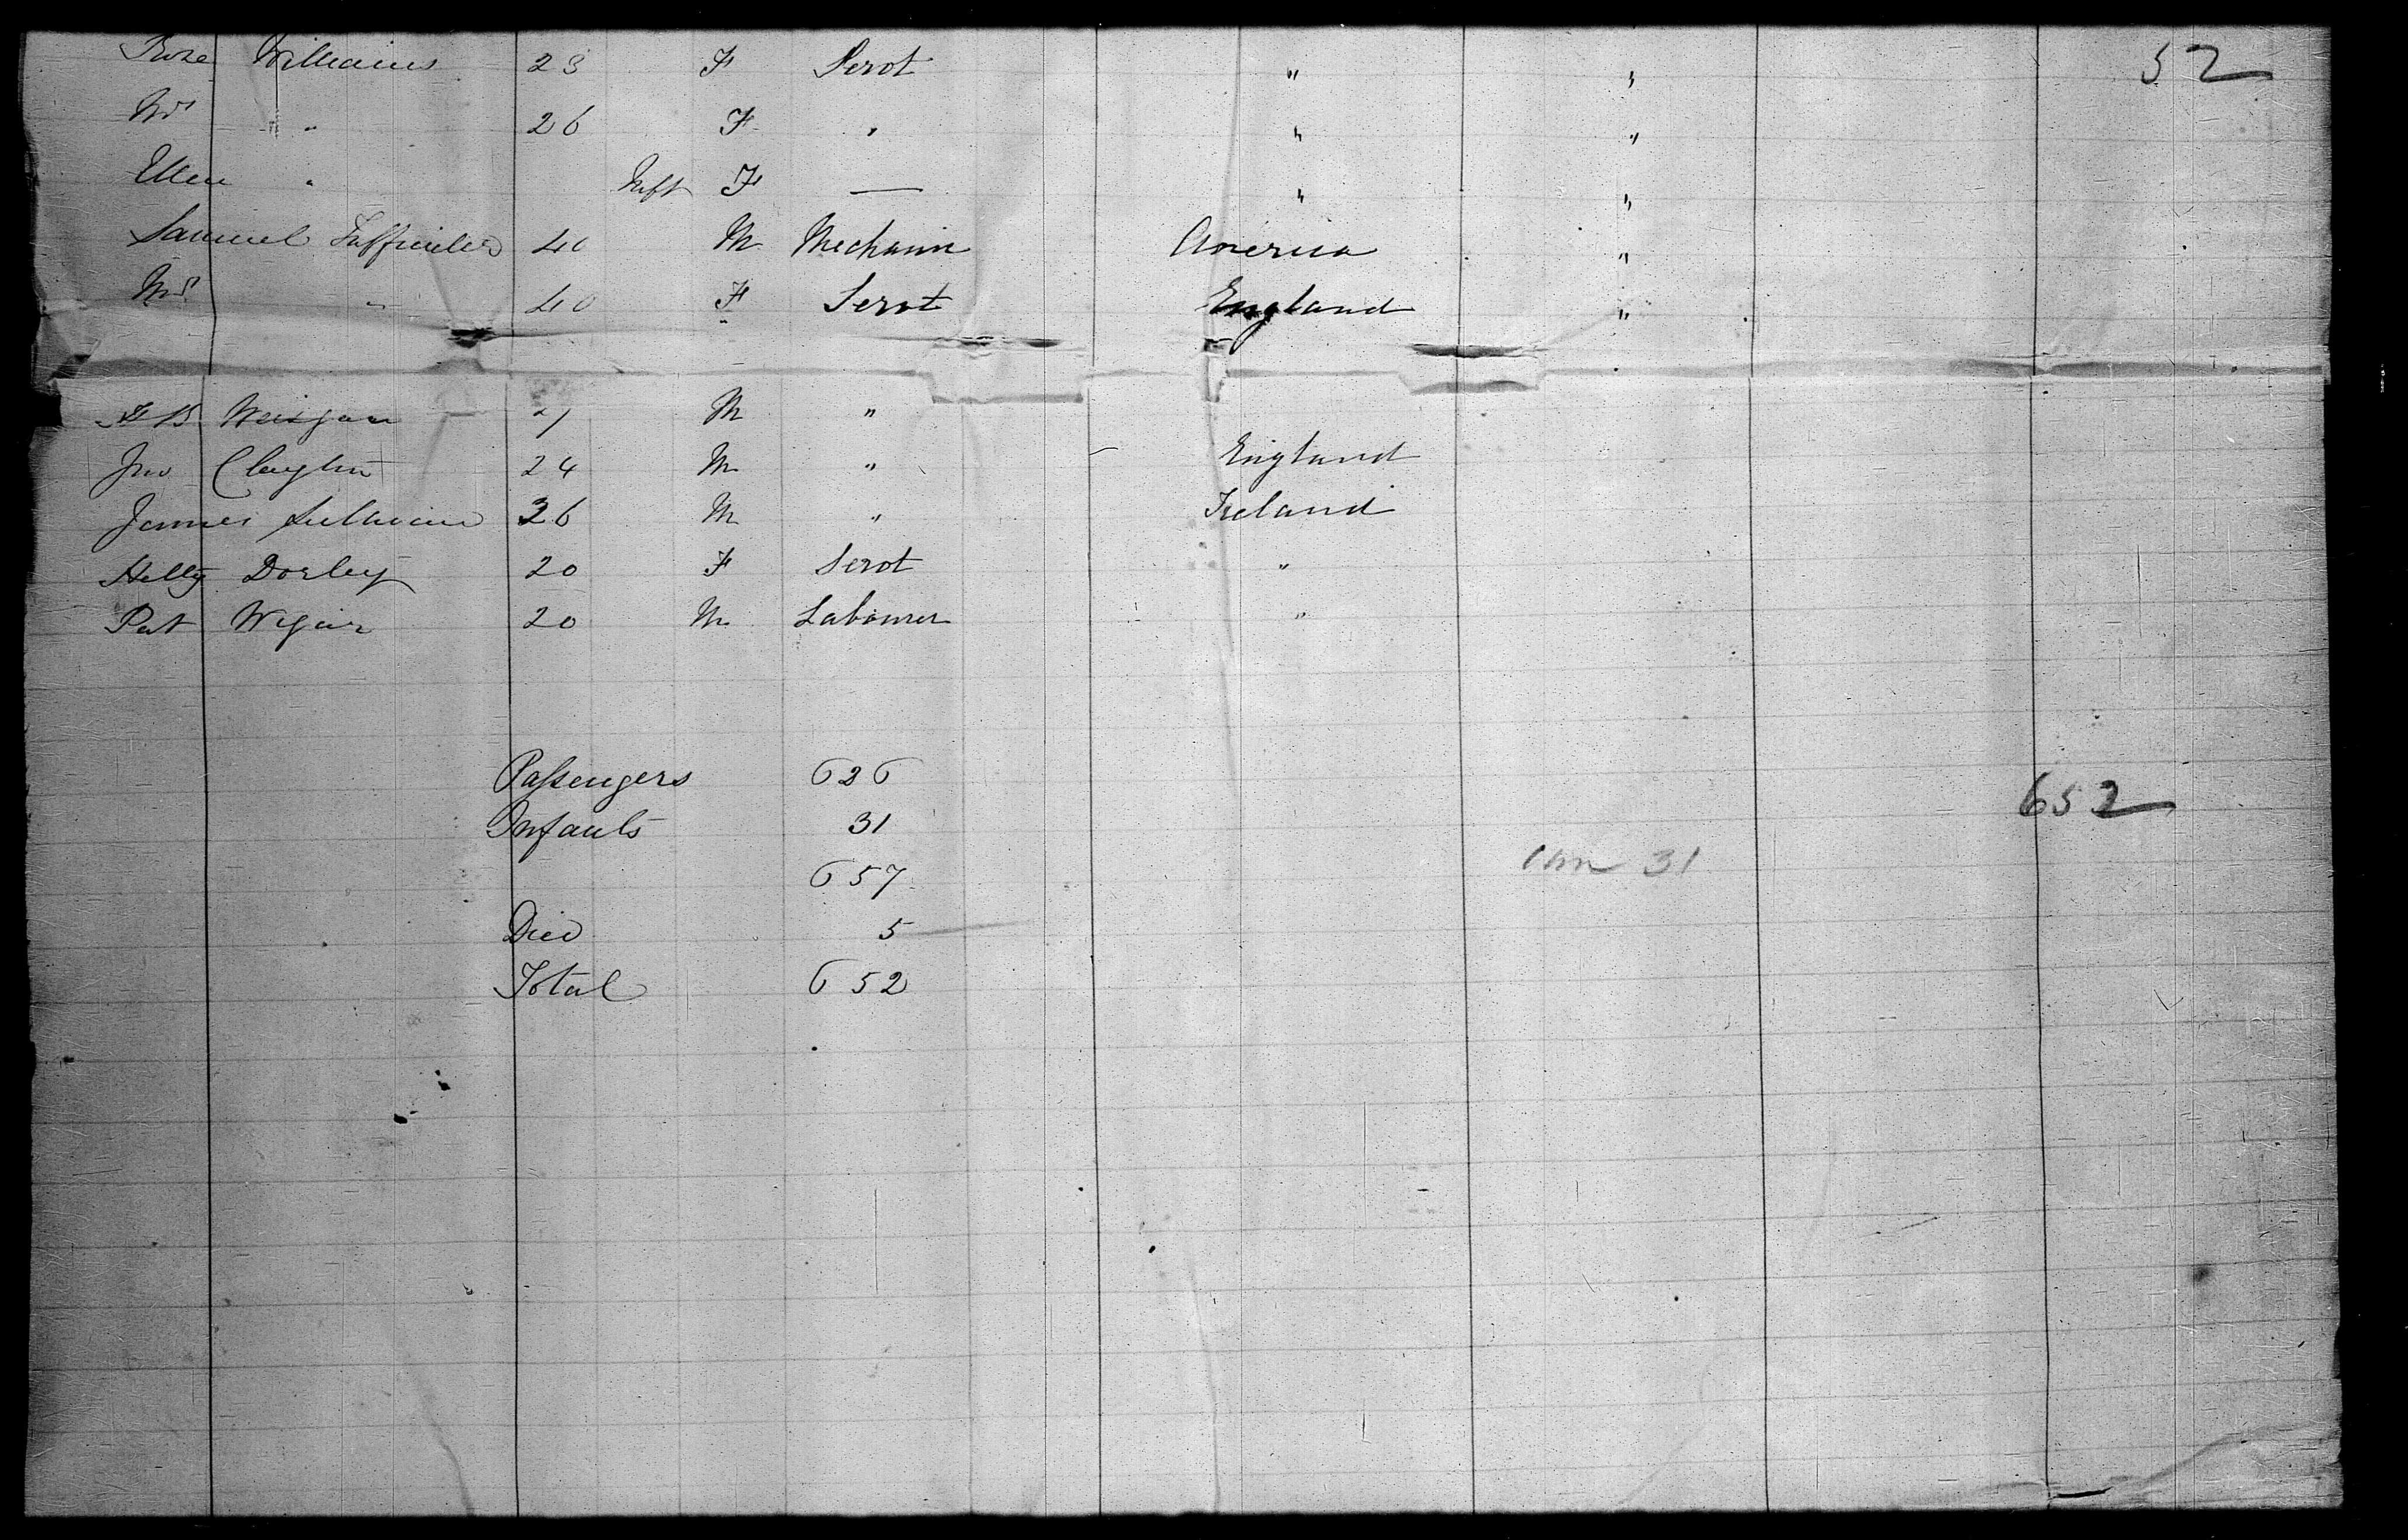 Rose Williams 23 F Servt " " 52
Mrs " 26 F " " "
Ellen " Inft F — " "
Samuel 40 M Mechanic America "
Mrs " 40 F Servt England "
M "
Jno Clayton 24 M " England
James Sullivan 26 M " Ireland
Dorley 20 F Servt "
Pat 20 M Labourer "
Passengers 626
652
Infants 31
657
31
Died 5
Total 652